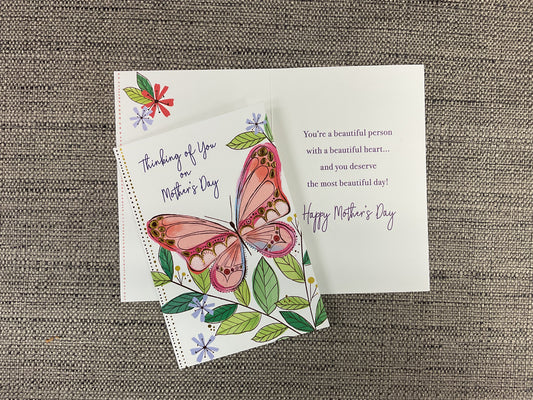 Thinking of You
on
Mother's Day
You're a beautiful person
with a beautiful heart...
and you deserve
the most beautiful day!
Happy Mother's Day